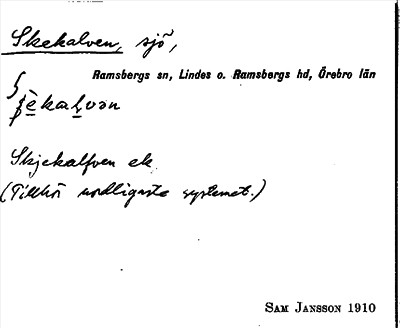 Skekalven, sjö,
Ramsbergs sn, Lindes o. Ramsbergs hd, Örebro län
Skjekalfven ek.
(Tillhör nordligaste systemet.)
SAM JANSSON 1910